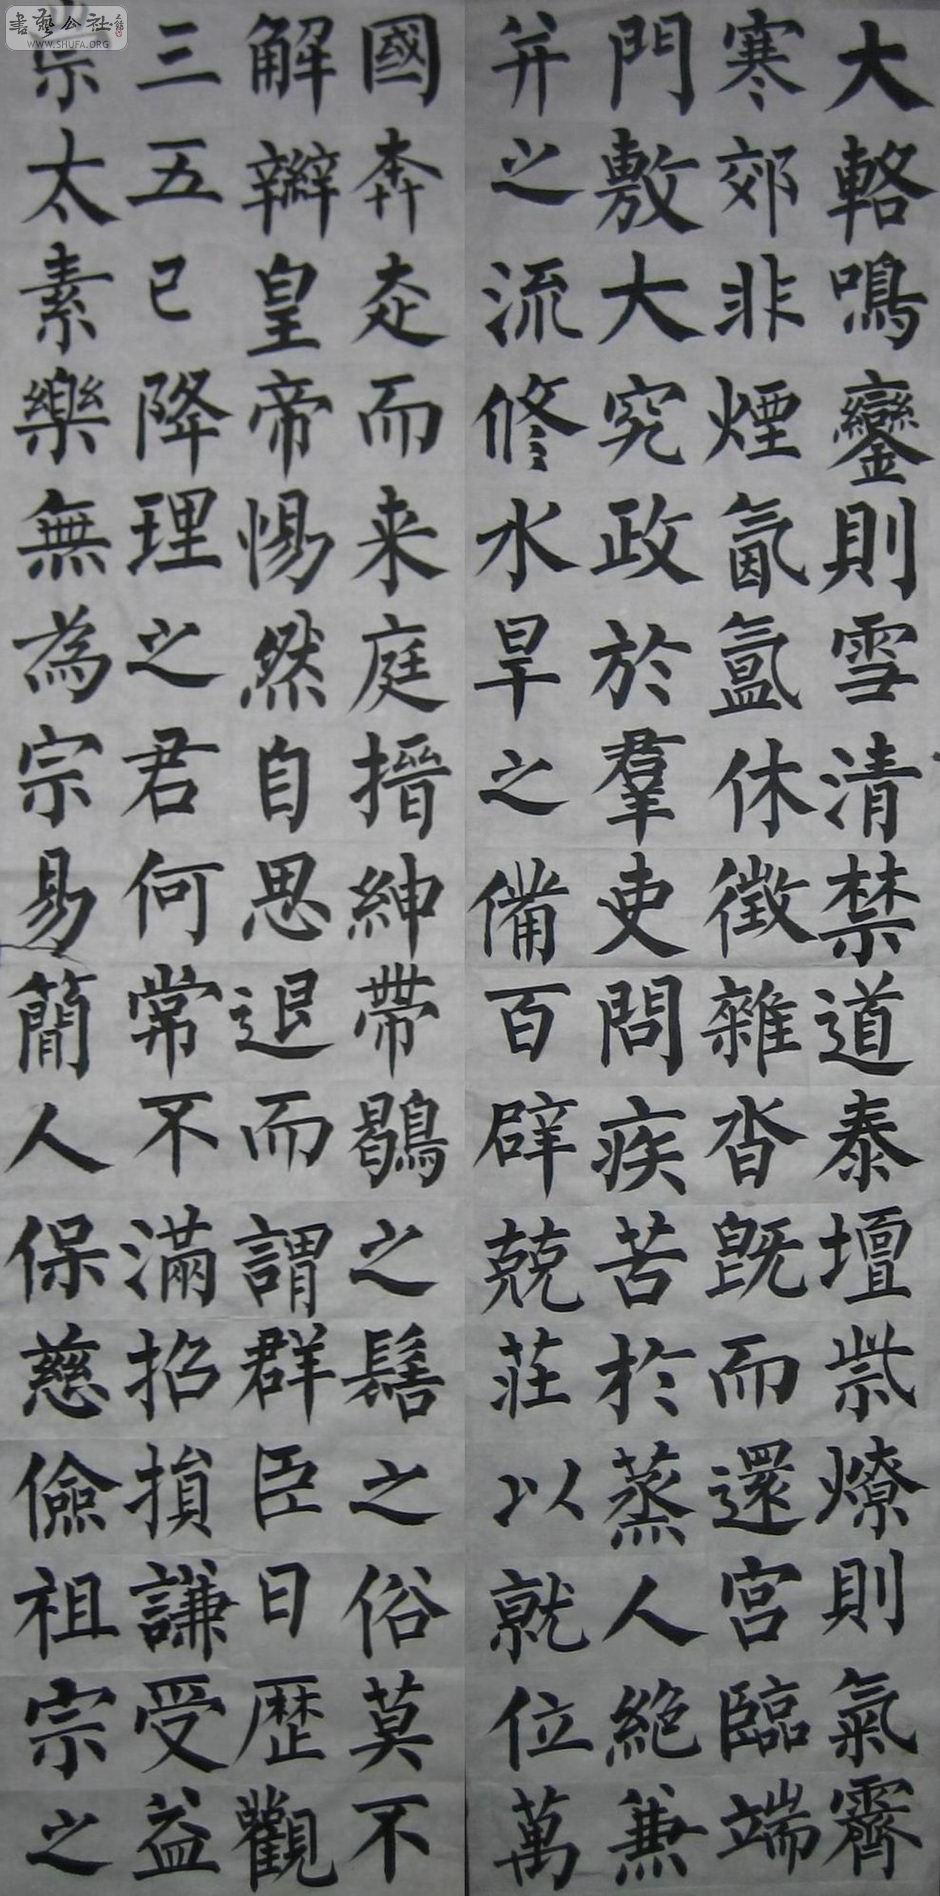 書藝公社
WWW.SHUFA.ORG
大輅鳴鑾則雪清禁道泰壇祡燎則氣霽
寒郊非煙氤氳休徵雜沓既而還宮臨端
門敷大究政於羣吏問疾苦於蒸人絕兼
并之流修水旱之備百辟兢莊以就位萬
國奔走而来庭搢紳帶鶡之髻之俗莫不
解辮皇帝惕然自思退而謂群臣曰歴觀
三五已降理之君何常不滿招損謙受益
崇太素樂無為宗易簡人保慈儉祖宗之